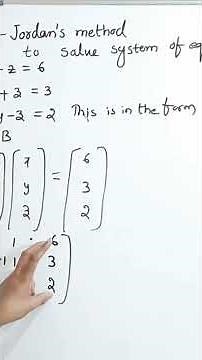 -Jordan's method
to solve system of eq
- z = 6
+ z = 3
y - z = 2 This is in the form
B
x 6
y = 3
z 2
1 : 6
-1 1 3
2